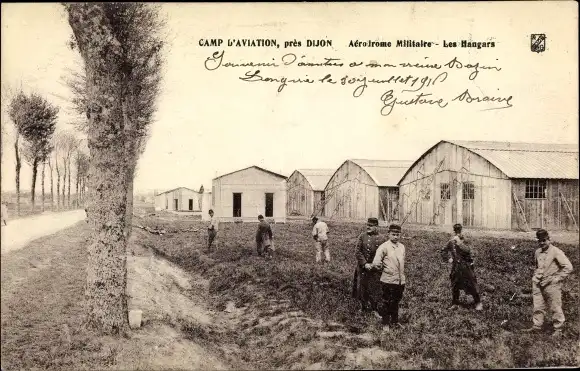 CAMP D'AVIATION, près DIJON Aérodrome Militaire - Les Hangars
Souvenir d'amitiés a mon vieux Bazin
Longvic le 30 juillet 191
Gustave